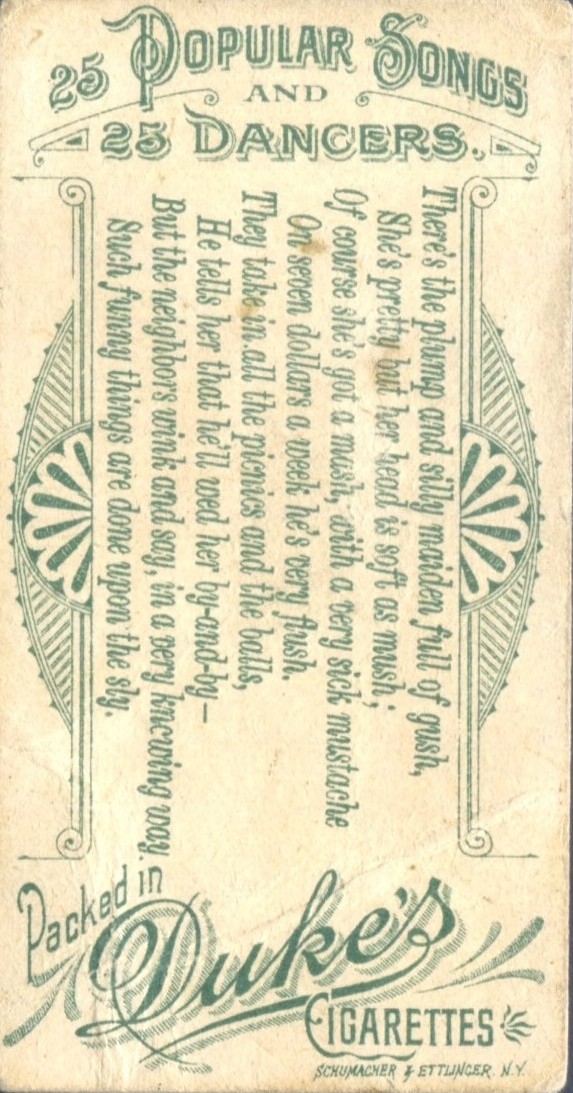 25 POPULAR SONGS
AND
25 DANCERS.
There's the plump and silly maiden full of gush,
She's pretty but her head is soft as mush;
Of course she's got a mash, with a very sick mustache
On seven dollars a week he's very flush.
They take in all the picnics and the balls,
He tells her that he'll wed her by-and-by—
But the neighbors wink and say, in a very knowing way.
Such funny things are done upon the sly.
Packed in
Duke's
CIGARETTES
SCHUMACHER & ETTLINGER. N.Y.